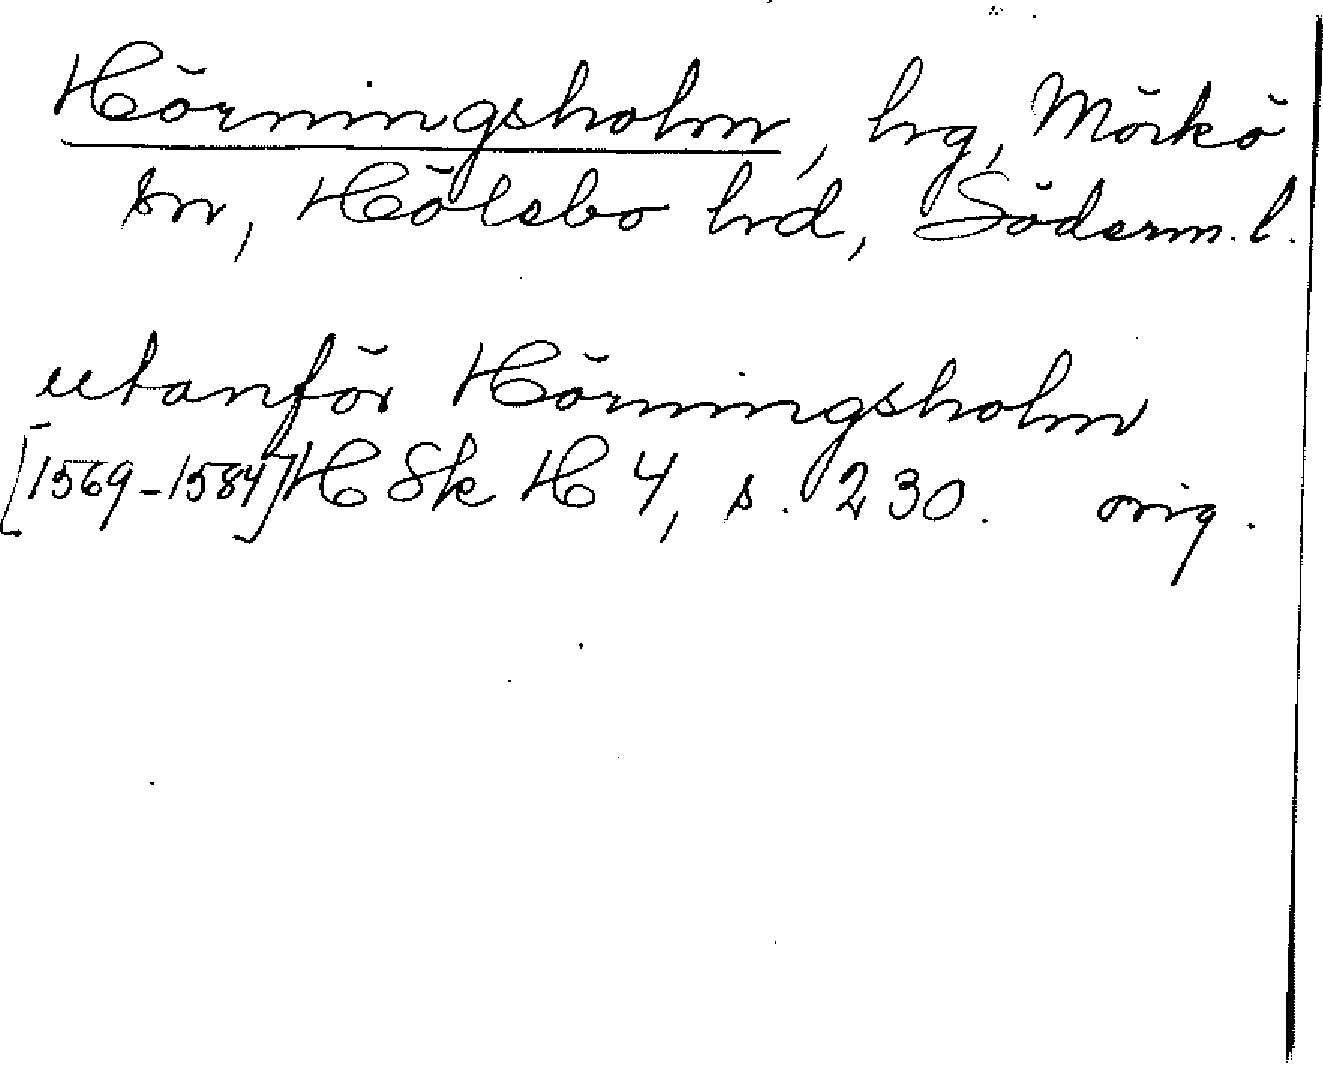 Hörningsholm, hrg, Mörkö
sn, Hölebo hrd, Söderm. l.
utanför Hörningsholm
[1569-1584] HSk H 4, s. 230. orig.